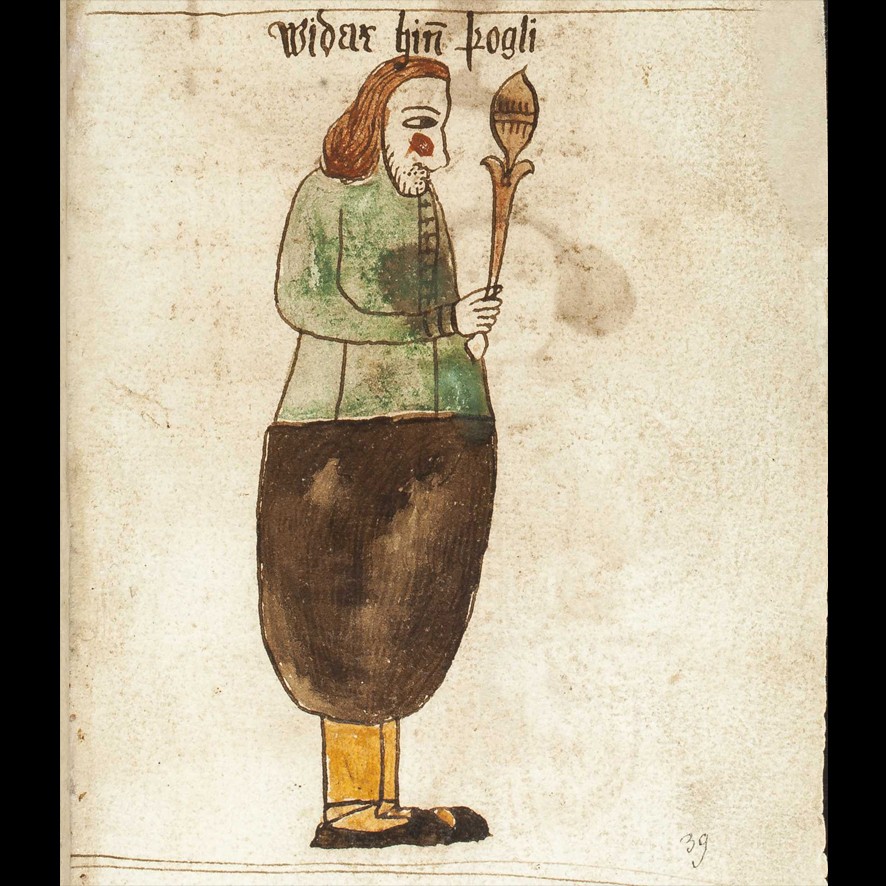 Widar hin̄ þogli
39